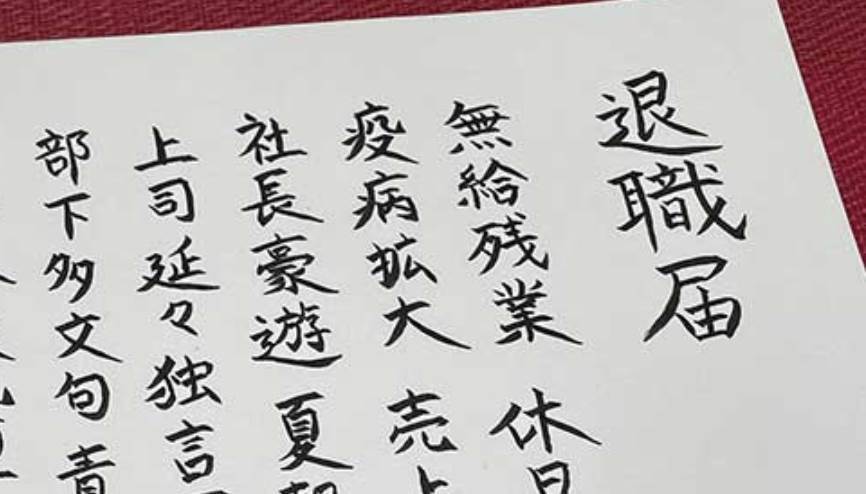 退職届
無給残業 休日
疫病拡大 売上
社長豪遊 夏
上司延々独言
部下多文句 責